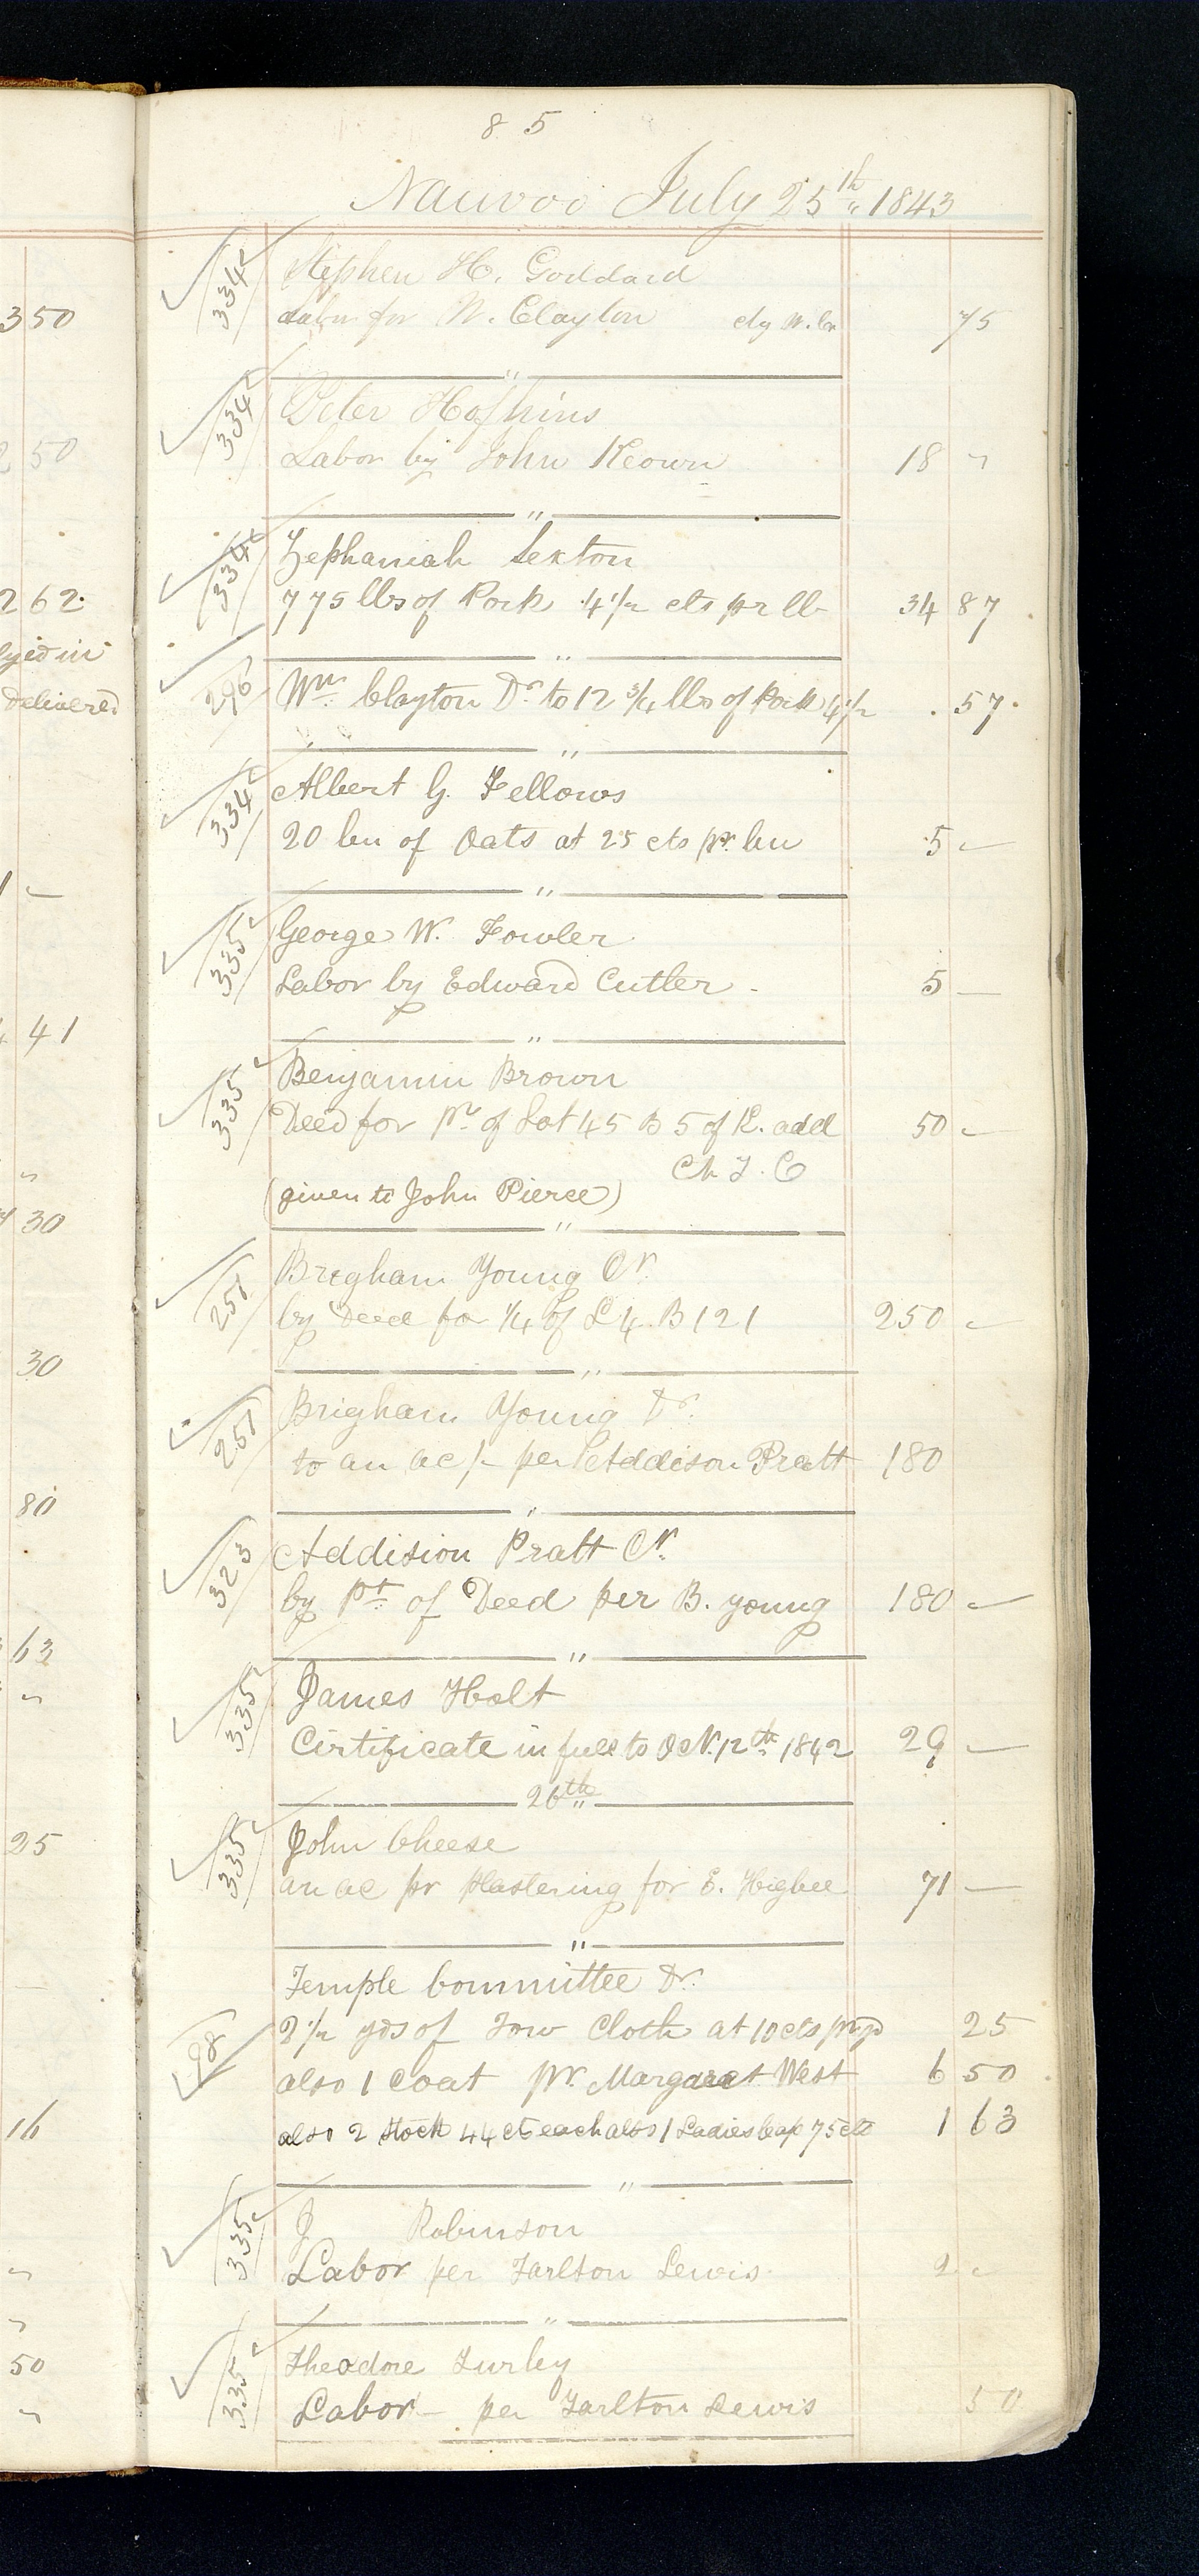 85
Nauvoo July 25th 1843
334 Stephen H. Goddard
Labor for W. Clayton chg W. Cn 75
"
334 Peter Hofhins
Labor by John Keown 18 "
"
334 Zephaniah Sexton
775 lbs of Pork 4 1/2 cts pr lb 34 87
"
296 Wm Clayton Dr to 12 3/4 lbs of Pork 4 1/2 57
"
334 Albert G. Fellows
20 bu of Oats at 25 cts pr. bu 5 -
"
335 George W. Fowler
Labor by Edward Cutler - 5 -
"
335 Benjamin Brown
Deed for pt of Lot 45 B 5 of K. add 50 -
Ch T. C
(given to John Pierce)
"
251 Bregham Young Cr.
by Deed for 1/4 of L 4 B 121 250 -
"
251 Brigham Young Dr.
to an ac/- per Addison Pratt 180
"
323 Addision Pratt Cr.
by Pt of Deed per B. young 180 -
"
335 James Holt
Certificate in full to Oct. 12th 1842 29 -
26th "
335 John Cheese
an ac pr plastering for E. Higbee 71 -
"
Temple Committee Dr.
98 2 1/2 yds of Tow Cloth at 10 cts pr yd 25
also 1 Coat pr. Margaret West 6 50
also 2 Stock 44 cts each also 1 Ladies Cap 75 cts 1 63
"
335 J Robinson
Labor per Tarlton Lewis 2 -
"
335 Theodore Turley
Labor - per Tarlton Lewis 50
350
2 50
262.
delivered
1 -
41
"
30
30
80
63
"
25
16
"
"
50
"